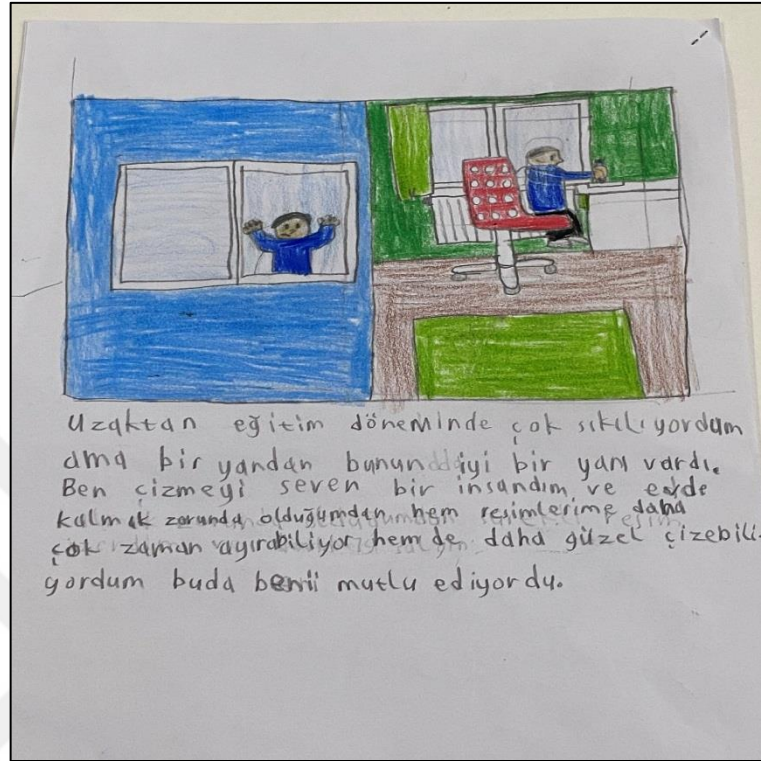 Uzaktan eğitim döneminde çok sıkılıyordum
ama bir yandan bununda iyi bir yanı vardı.
Ben çizmeyi seven bir insandım ve evde
kalmak zorunda olduğumdan hem resimlerime daha
çok zaman ayırabiliyor hemde daha güzel çizebili-
yordum buda beni mutlu ediyordu.